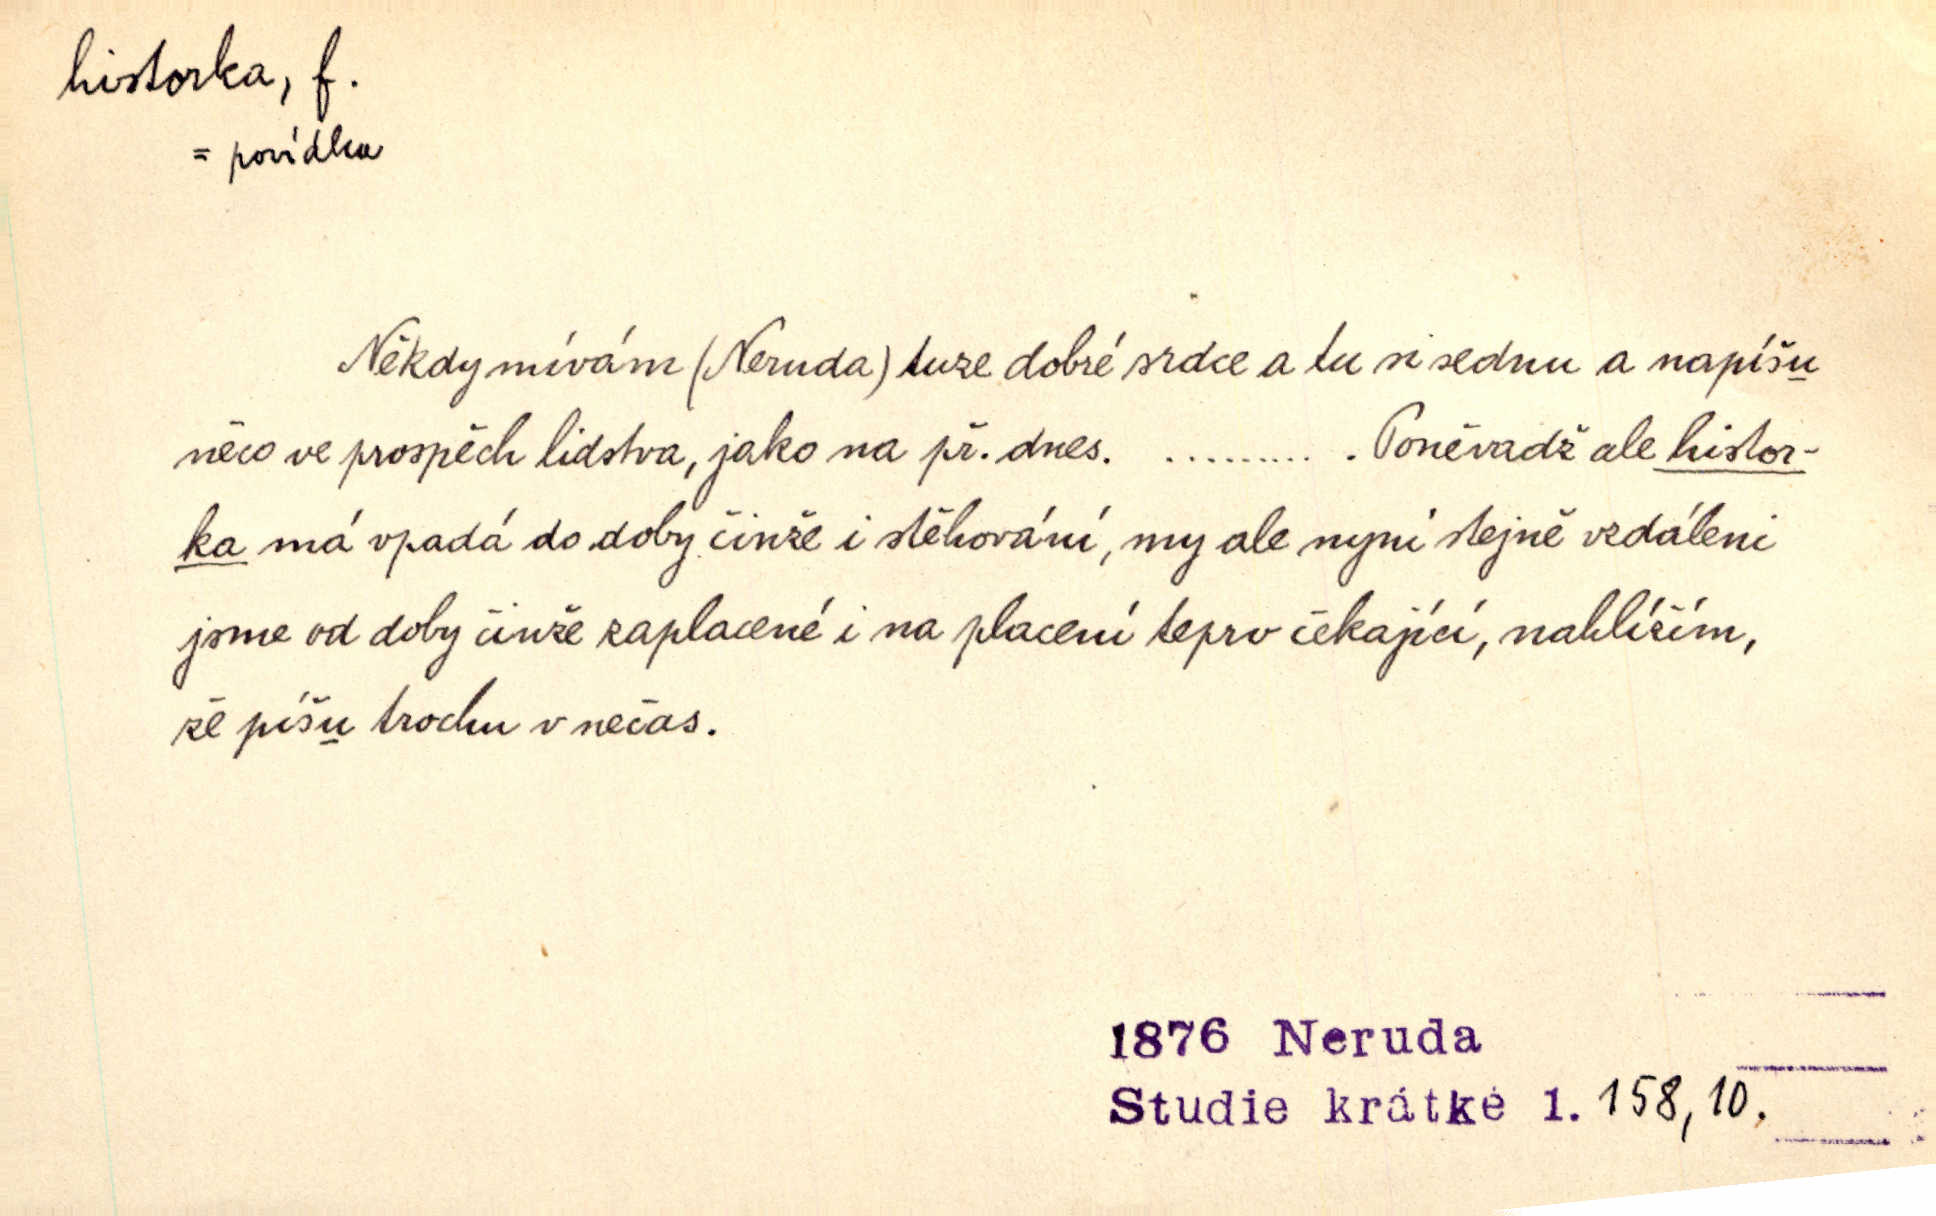 historka, f.
= povídka
Někdy mívám (Neruda) tuze dobré srdce a tu si sednu a napíšu
něco ve prospěch lidstva, jako na př. dnes. ......... . Poněvadž ale histor-
ka má vpadá do doby činže i stěhování, my ale nyní stejně vzdáleni
jsme od doby činže zaplacené i na placení teprv čekající, nahlížím,
že píšu trochu v nečas.
1876 Neruda
Studie krátké 1. 158, 10.